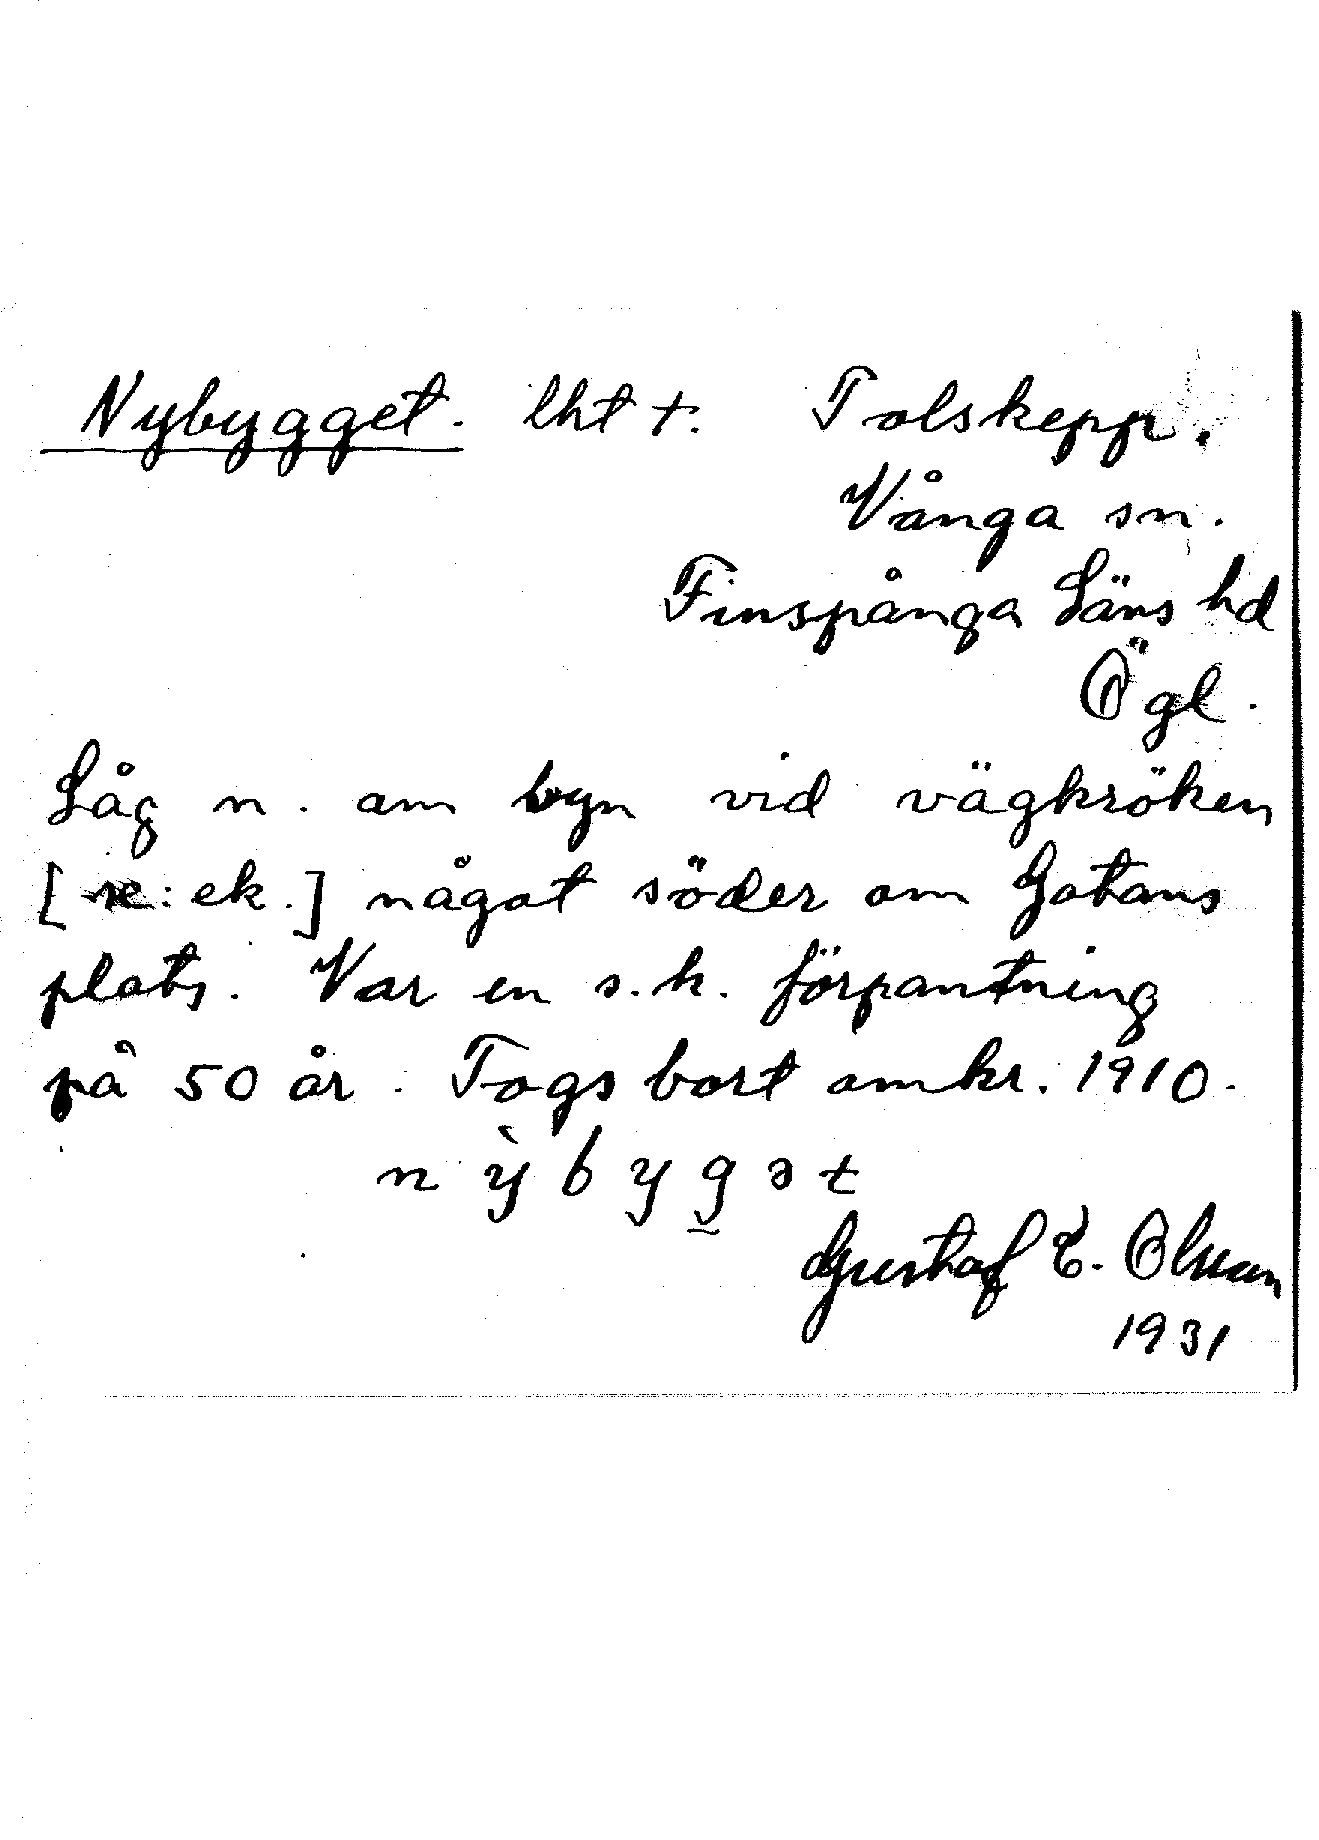 Nybygget. lht +. Tolskepp.
Vånga sn.
Finspånga Läns hd
Ögl.
Låg n. om byn vid vägkröken
[se: ek.] något söder om Gotans
plats. Var en s.k. förpantning
på 50 år. Togs bort omkr. 1910.
nỳbygət
Gustaf E. Olsson
1931